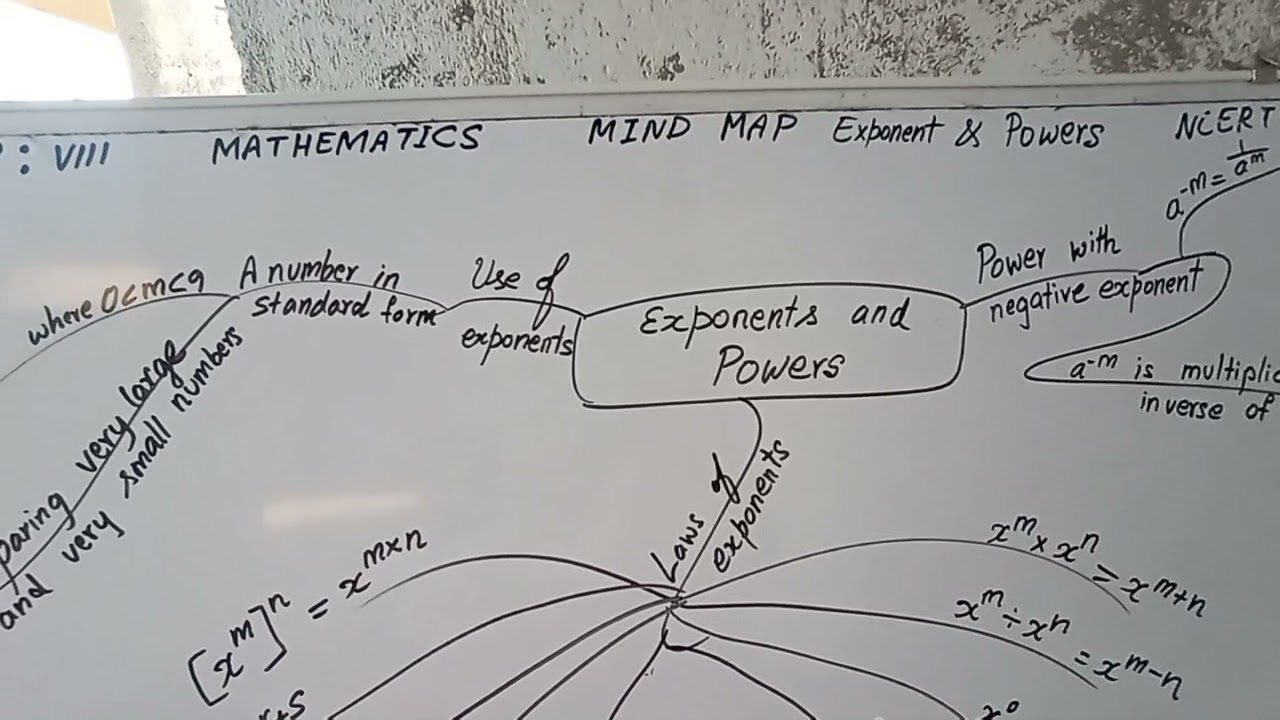 : VIII MATHEMATICS MIND MAP Exponent & Powers NCERT
a⁻ᵐ = 1/aᵐ
Power with
negative exponent
a⁻ᵐ is
inverse of
Exponents and
Powers
Use of
exponents
A number in
standard form
where 0<m<9
very large
and very small numbers
Laws of
exponents
[xᵐ]ⁿ = xᵐˣⁿ
xᵐ × xⁿ = xᵐ⁺ⁿ
xᵐ ÷ xⁿ = xᵐ⁻ⁿ
x⁰